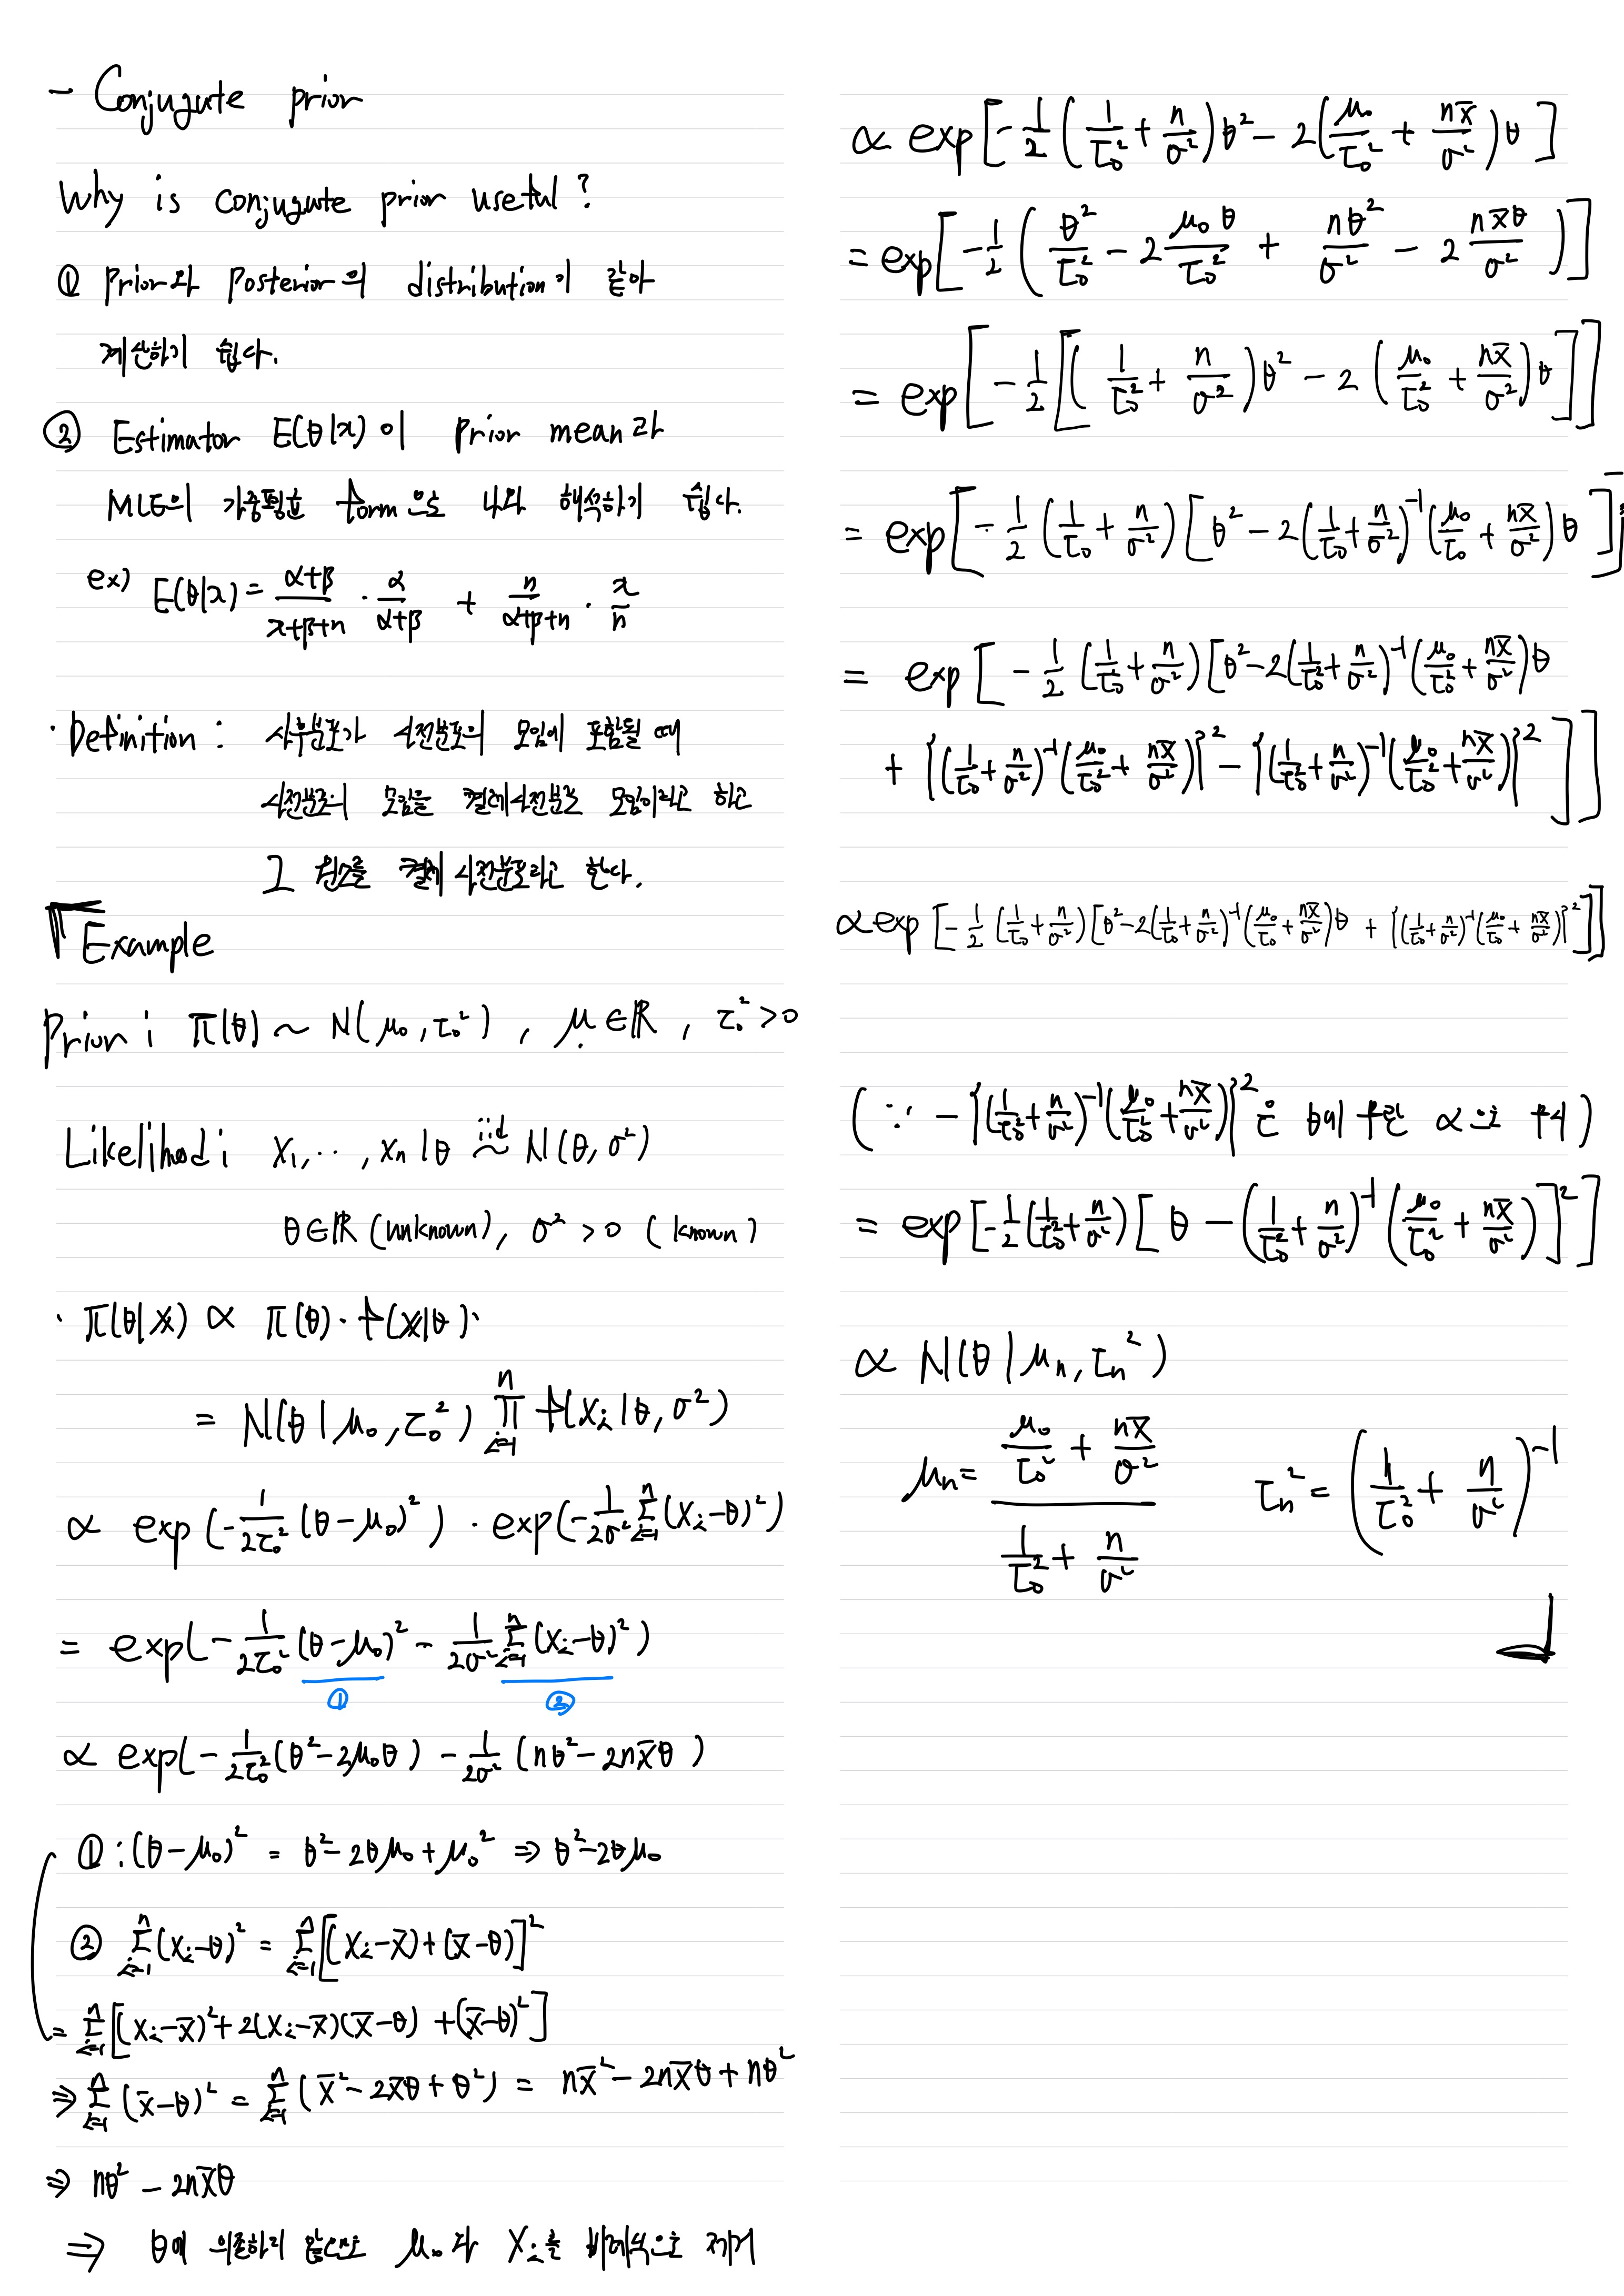 - Conjugate prior
Why is conjugate prior useful?
① Prior와 Posterior의 distribution이 같아
계산하기 쉽다.
② Estimator E(θ|x)이 prior mean과
MLE의 가중평균 form으로 나와 해석하기 쉽다.
ex) E(θ|x) = (α+β)/(α+β+n) · α/(α+β) + n/(α+β+n) · x/n
· Definition : 사후분포가 사전분포의 모임에 포함될 때
사전분포의 모임을 켤레사전분포 모임이라고 하고
그 원소를 켤레 사전분포라고 한다.
「Example
Prior : π(θ) ~ N(μ₀, τ₀²), μ ∈ ℝ, τ₀² > 0
Likelihood : X₁, ..., xₙ|θ ~iid N(θ, σ²)
θ∈ℝ (unknown), σ² > 0 (known)
· π(θ|x) ∝ π(θ) · f(x|θ)·
= N(θ|μ₀, τ₀²) ∏ᵢ₌₁ⁿ f(Xᵢ|θ, σ²)
∝ exp(-1/(2τ₀²) (θ-μ₀)²) · exp(-1/(2σ²) Σᵢ₌₁ⁿ (Xᵢ-θ)²)
= exp(-1/(2τ₀²) (θ-μ₀)² - 1/(2σ²) Σᵢ₌₁ⁿ (Xᵢ-θ)²)
① ②
∝ exp(-1/(2τ₀²) (θ²-2μ₀θ) - 1/(2σ²) (nθ²-2nx̄θ)
① : (θ-μ₀)² = θ²-2θμ₀+μ₀² ⇒ θ²-2θμ₀
② Σᵢ₌₁ⁿ (Xᵢ-θ)² = Σᵢ₌₁ⁿ [(Xᵢ-x̄)+(x̄-θ)]²
= Σᵢ₌₁ⁿ [(Xᵢ-x̄)²+2(Xᵢ-x̄)(x̄-θ)+(x̄-θ)²]
⇒ Σᵢ₌₁ⁿ (x̄-θ)² = Σᵢ₌₁ⁿ (x̄²-2x̄θ+θ²) = nx̄²-2nx̄θ+nθ²
⇒ nθ² - 2nx̄θ
⇒ θ에 의존하지 않으므로 μ₀과 Xᵢ를 비례식으로 제거
∝ exp[-1/2 (1/τ₀² + n/σ²)θ² - 2(μ₀/τ₀² + nx̄/σ²)θ]
= exp[-1/2 (θ²/τ₀² - 2 μ₀θ/τ₀² + nθ²/σ² - 2 nx̄θ/σ²)]
= exp[-1/2 [(1/τ₀² + n/σ²)θ² - 2(μ₀/τ₀² + nx̄/σ²)θ]]
= exp[-1/2 (1/τ₀ + n/σ²)[θ² - 2(1/τ₀ + n/σ²)⁻¹(μ₀/τ₀ + nx̄/σ²)θ]]
= exp[-1/2 (1/τ₀² + n/σ²)[θ² - 2(1/τ₀² + n/σ²)⁻¹(μ₀/τ₀² + nx̄/σ²)θ
+ {(1/τ₀² + n/σ²)⁻¹(μ₀/τ₀² + nx̄/σ²)}² - {(1/τ₀² + n/σ²)⁻¹(μ₀/τ₀² + nx̄/σ²)}²]]
∝ exp[-1/2 (1/τ₀² + n/σ²)[θ² - 2(1/τ₀² + n/σ²)⁻¹(μ₀/τ₀² + nx̄/σ²)θ + {(1/τ₀² + n/σ²)⁻¹(μ₀/τ₀² + nx̄/σ²)}²]]
(∵ -{(1/τ₀² + n/σ²)⁻¹(μ₀/τ₀² + nx̄/σ²)}²은 θ에 α로
= exp[-1/2 (1/τ₀² + n/σ²)[θ - (1/τ₀² + n/σ²)⁻¹(μ₀/τ₀² + nx̄/σ²)]²]
∝ N(θ|μₙ, τₙ²)
μₙ = (μ₀/τ₀² + nx̄/σ²)/(1/τ₀² + n/σ²) τₙ² = (1/τ₀² + n/σ²)⁻¹
」